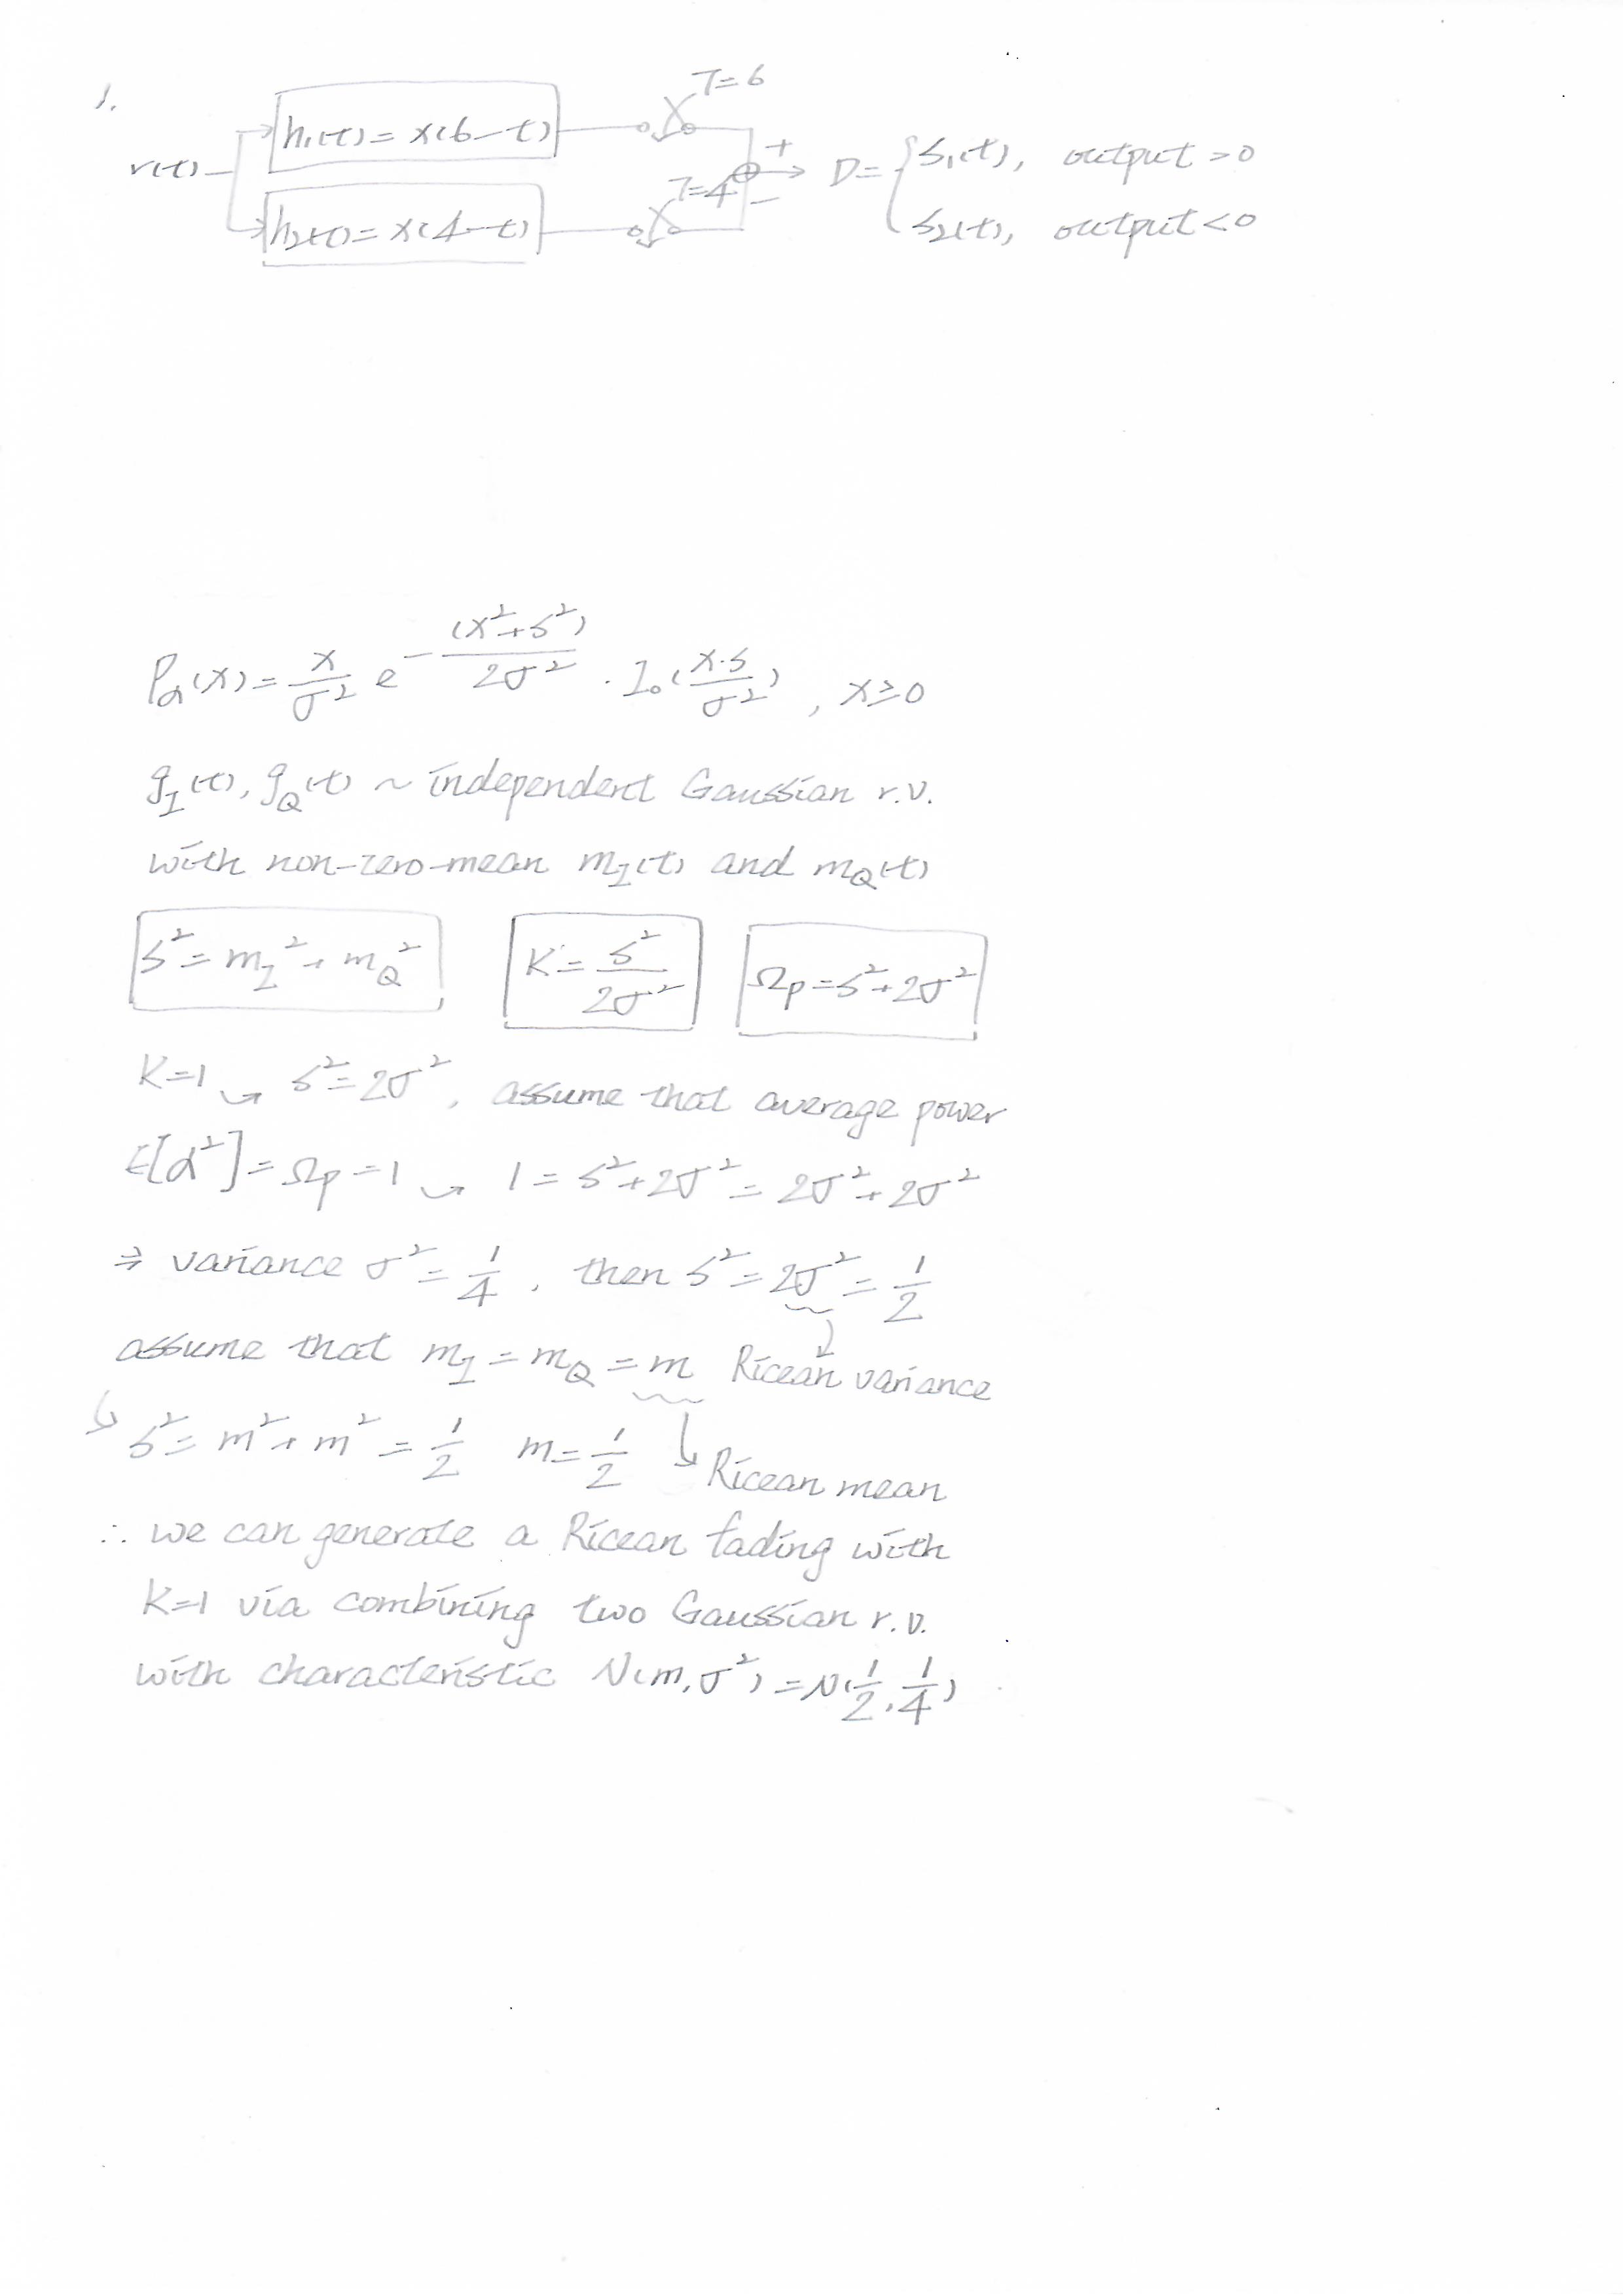 1.
T=6
h₁(t)=x(6-t)
r(t)
+
D={ S₁(t), output>0
T=4
-
h₂(t)=x(4-t)
S₂(t), output<0
Pα(x)= x/σ² e^-(x²+s²)/2σ² · I₀(x·s/σ²), x≥0
g_I(t), g_Q(t) ~ independent Gaussian r.v.
with non-zero-mean m_I(t) and m_Q(t)
s²=m_I²+m_Q² K=s²/2σ² Ωp=s²+2σ²
K=1 → s²=2σ², assume that average power
E[α²]=Ωp=1 → 1=s²+2σ²=2σ²+2σ²
⇒ variance σ²=1/4, then s²=2σ²=1/2
assume that m_I=m_Q=m Ricean variance
↳ s²=m²+m²=1/2 m=1/2 ↳ Ricean mean
∴ we can generate a Ricean fading with
K=1 via combining two Gaussian r.v.
with characteristic N(m,σ²)=N(1/2,1/4)